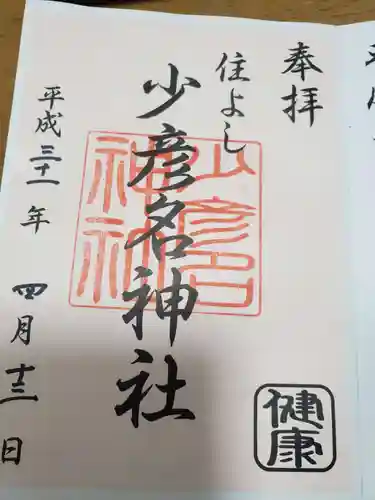 奉拝
住よし
少彦名神社
少彦名
神社
平成三十一年四月十三日
健康